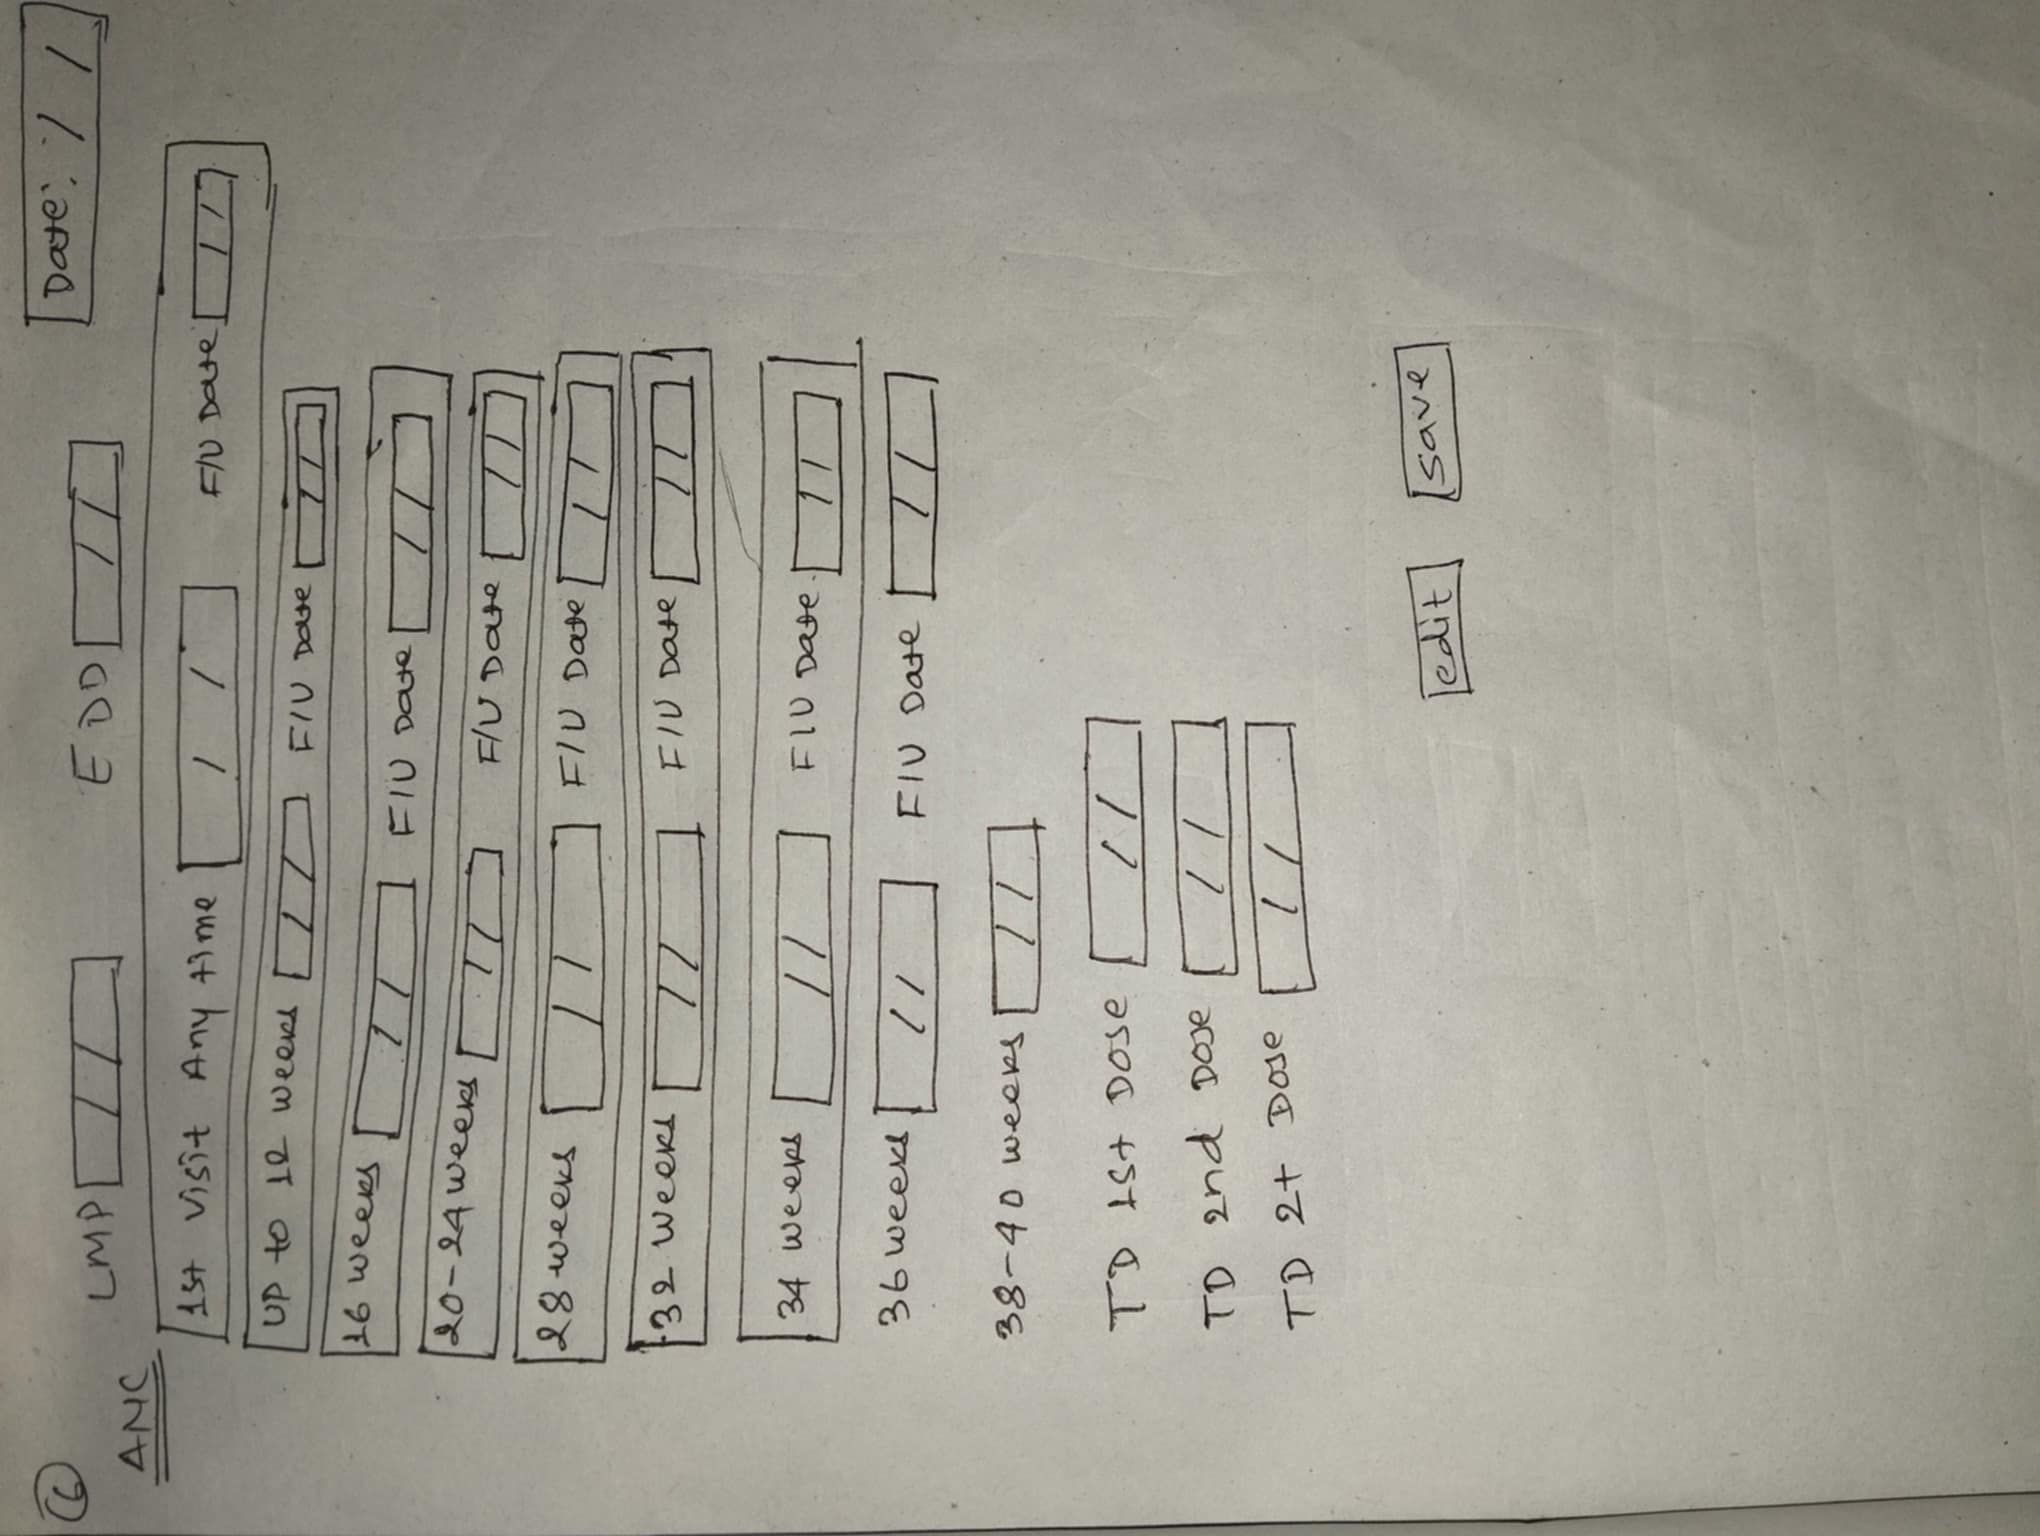 6
Date: / /
LMP / / EDD / /
ANC
1st Visit Any time / / F/U Date / /
UP to 12 weeks / / F/U Date / /
16 weeks / / F/U Date / /
20-24 weeks / / F/U Date / /
28 weeks / / F/U Date / /
32 weeks / / F/U Date / /
34 weeks / / F/U Date / /
36 weeks / / F/U Date / /
38-40 weeks / /
TD 1st Dose / /
TD 2nd Dose / /
TD 2+ Dose / /
edit save